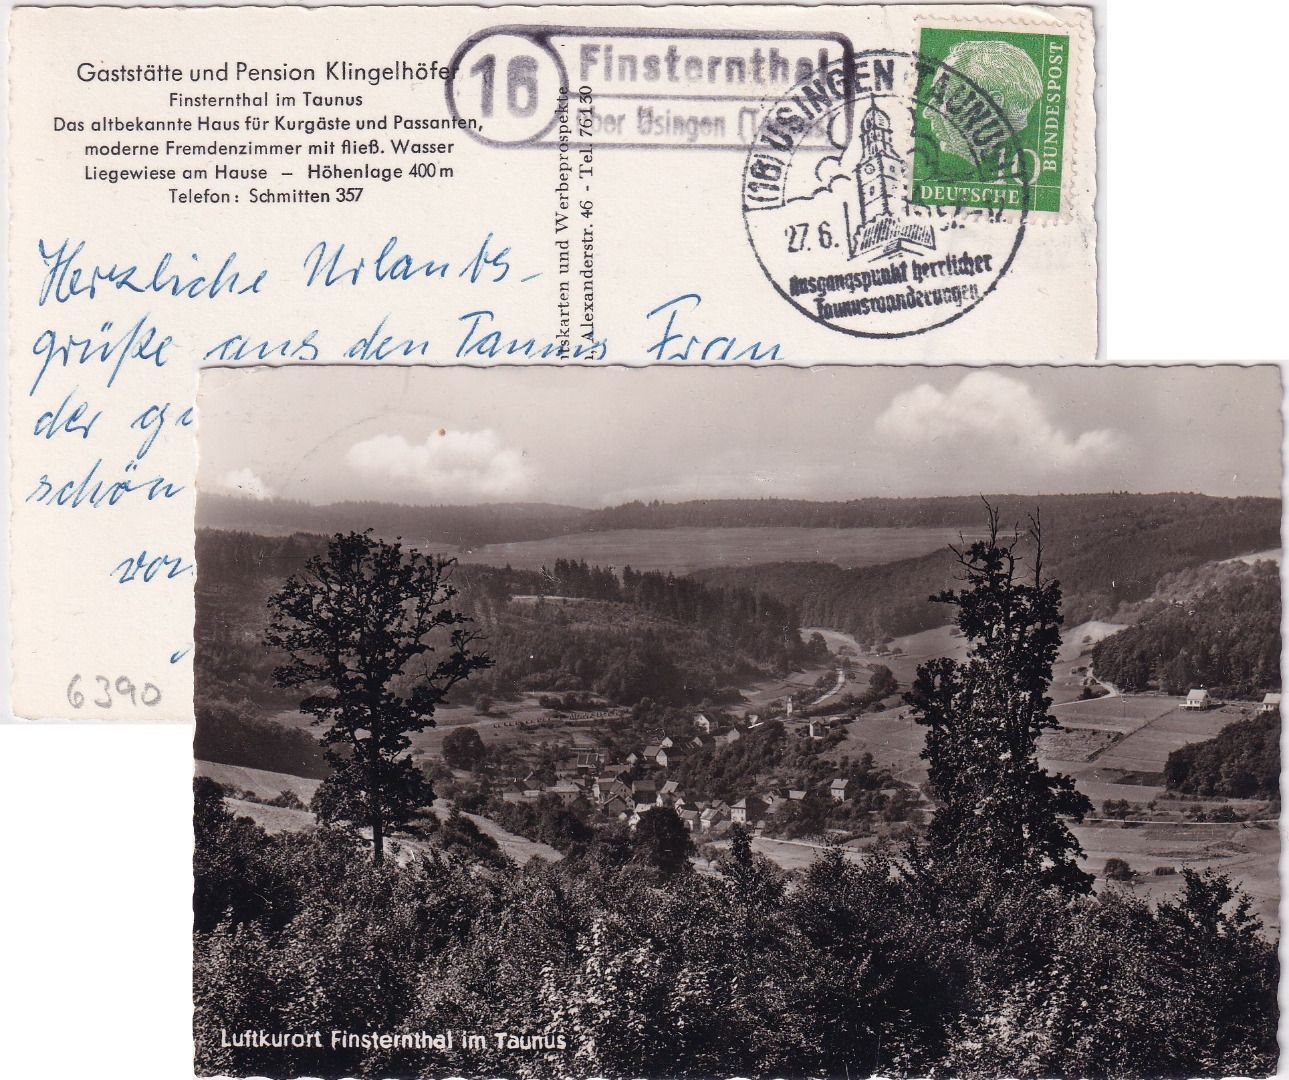 Gaststätte und Pension Klingelhöfer
Finsternthal im Taunus
Das altbekannte Haus für Kurgäste und Passanten,
moderne Fremdenzimmer mit fließ. Wasser
Liegewiese am Hause – Höhenlage 400 m
Telefon: Schmitten 357
16
Finsternthal
über Usingen (Taunus)
(16) USINGEN TAUNUS
27. 6.
Ausgangspunkt herrlicher
Taunuswanderungen
DEUTSCHE
BUNDESPOST
10
tskarten und Werbeprospekte
Alexanderstr. 46 - Tel. 76130
Herzliche Urlaubs-
grüße aus den Taunus Frau
der
schön
von
6390
Luftkurort Finsternthal im Taunus